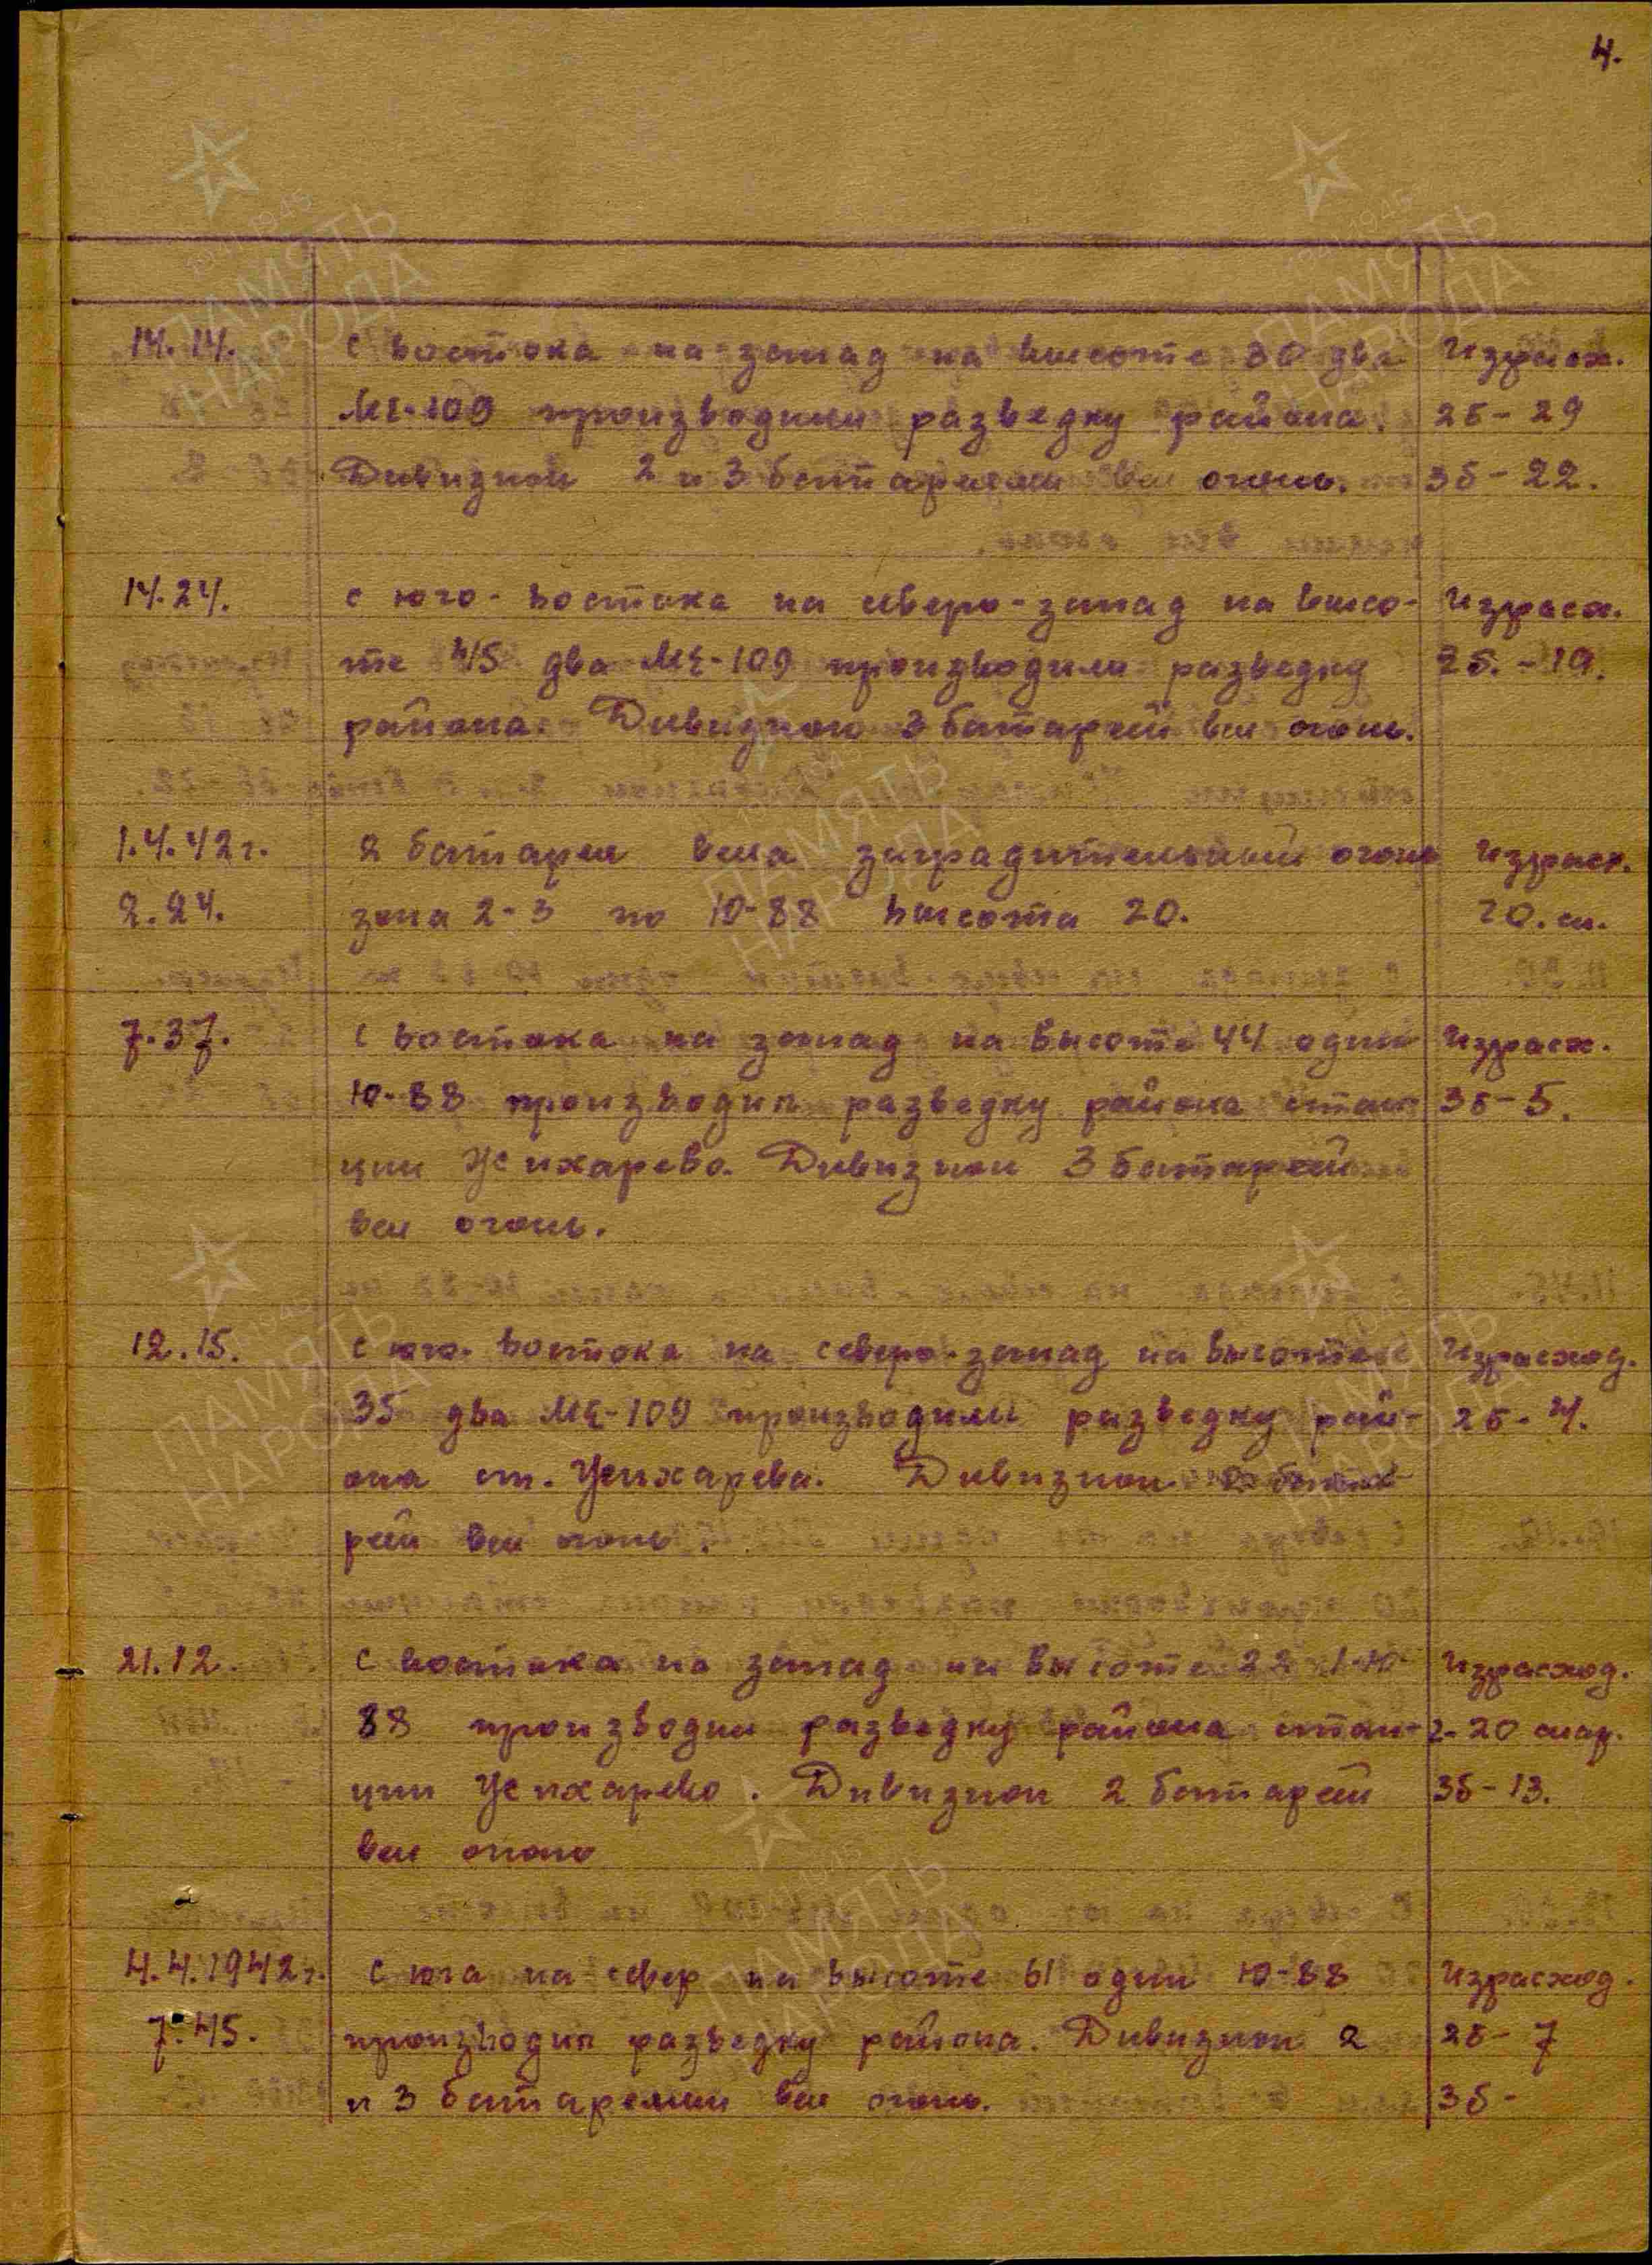 4.
14.14. с востока на запад на высоте 30 два Израсх.
МЕ-109 производили разведку района. 2б-29
Дивизион 2 и 3 батареями вел огонь. 3б-22.
14.24. с юго-востока на северо-запад на высо- Израсх.
те 45 два МЕ-109 производили разведку 2б.-19.
района. Дивизион 3 батареей вел огонь.
1.4.42г. 2 батарея вела заградительный огонь Израсх.
2.24. зона 2-3 по Ю-88 высота 20. 20.сн.
7.37. с востока на запад на высоте 44 один Израсх.
Ю-88 производил разведку района стан- 3б-5.
ции Жихарево. Дивизион 3 батареей
вел огонь.
12.15. с юго-востока на северо-запад на высоте Израсход.
35 два МЕ-109 производили разведку рай- 2б-4.
она ст. Жихарево. Дивизион 2 бата-
реей вел огонь.
21.12. с востока на запад на высоте 22 1-Ю- Израсход.
88 производил разведку района стан- 2-20 снар.
ции Жихарево. Дивизион 2 батареей 3б-13.
вел огонь
4.4.1942г. с юга на север на высоте 61 один Ю-88 Израсход.
7.45. производил разведку района. Дивизион 2 2б-7
и 3 батареями вел огонь. 3б-